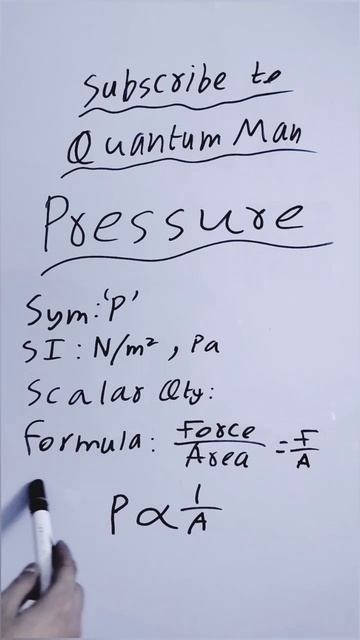 Subscribe to
Quantum Man
Pressure
Sym: 'P'
SI: N/m², Pa
Scalar Qty:
Formula: Force/Area = F/A
P ∝ 1/A